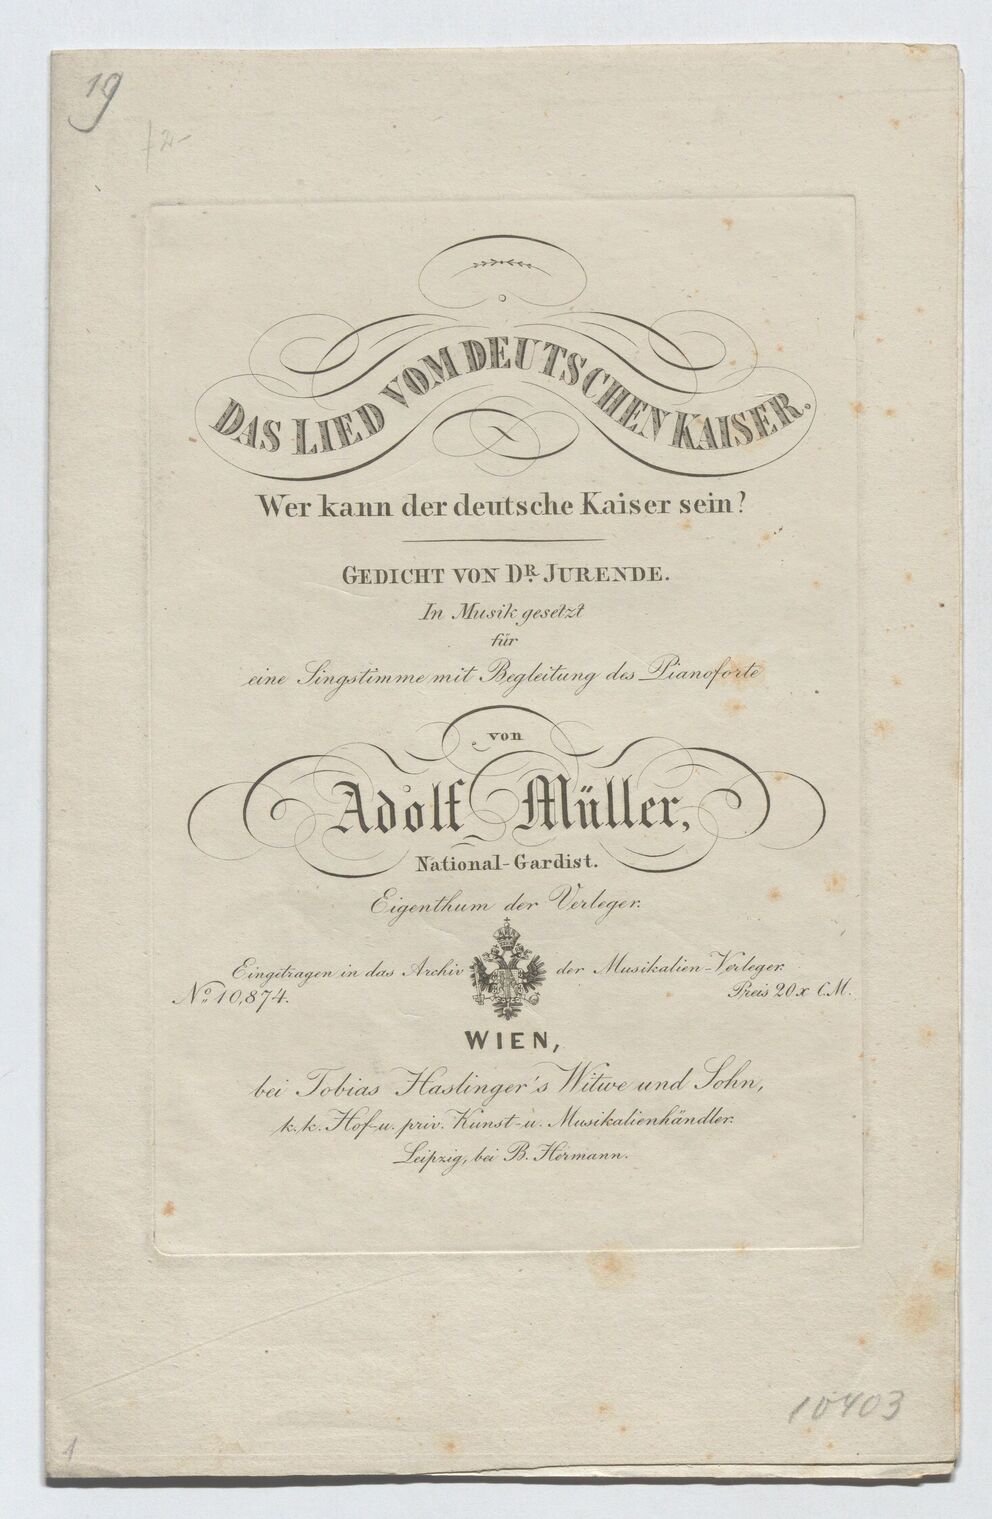 19
DAS LIED VOM DEUTSCHEN KAISER.
Wer kann der deutsche Kaiser sein?
GEDICHT VON DR. JURENDE.
In Musik gesetzt
für
eine Singstimme mit Begleitung des Pianoforte
von
Adolf Müller,
National-Gardist.
Eigenthum der Verleger.
Eingetragen in das Archiv der Musikalien-Verleger.
No. 10,874. Preis 20x C.M.
WIEN,
bei Tobias Haslinger's Witwe und Sohn,
k.k. Hof-u. priv. Kunst-u. Musikalienhändler.
Leipzig, bei B. Hermann.
10403
1